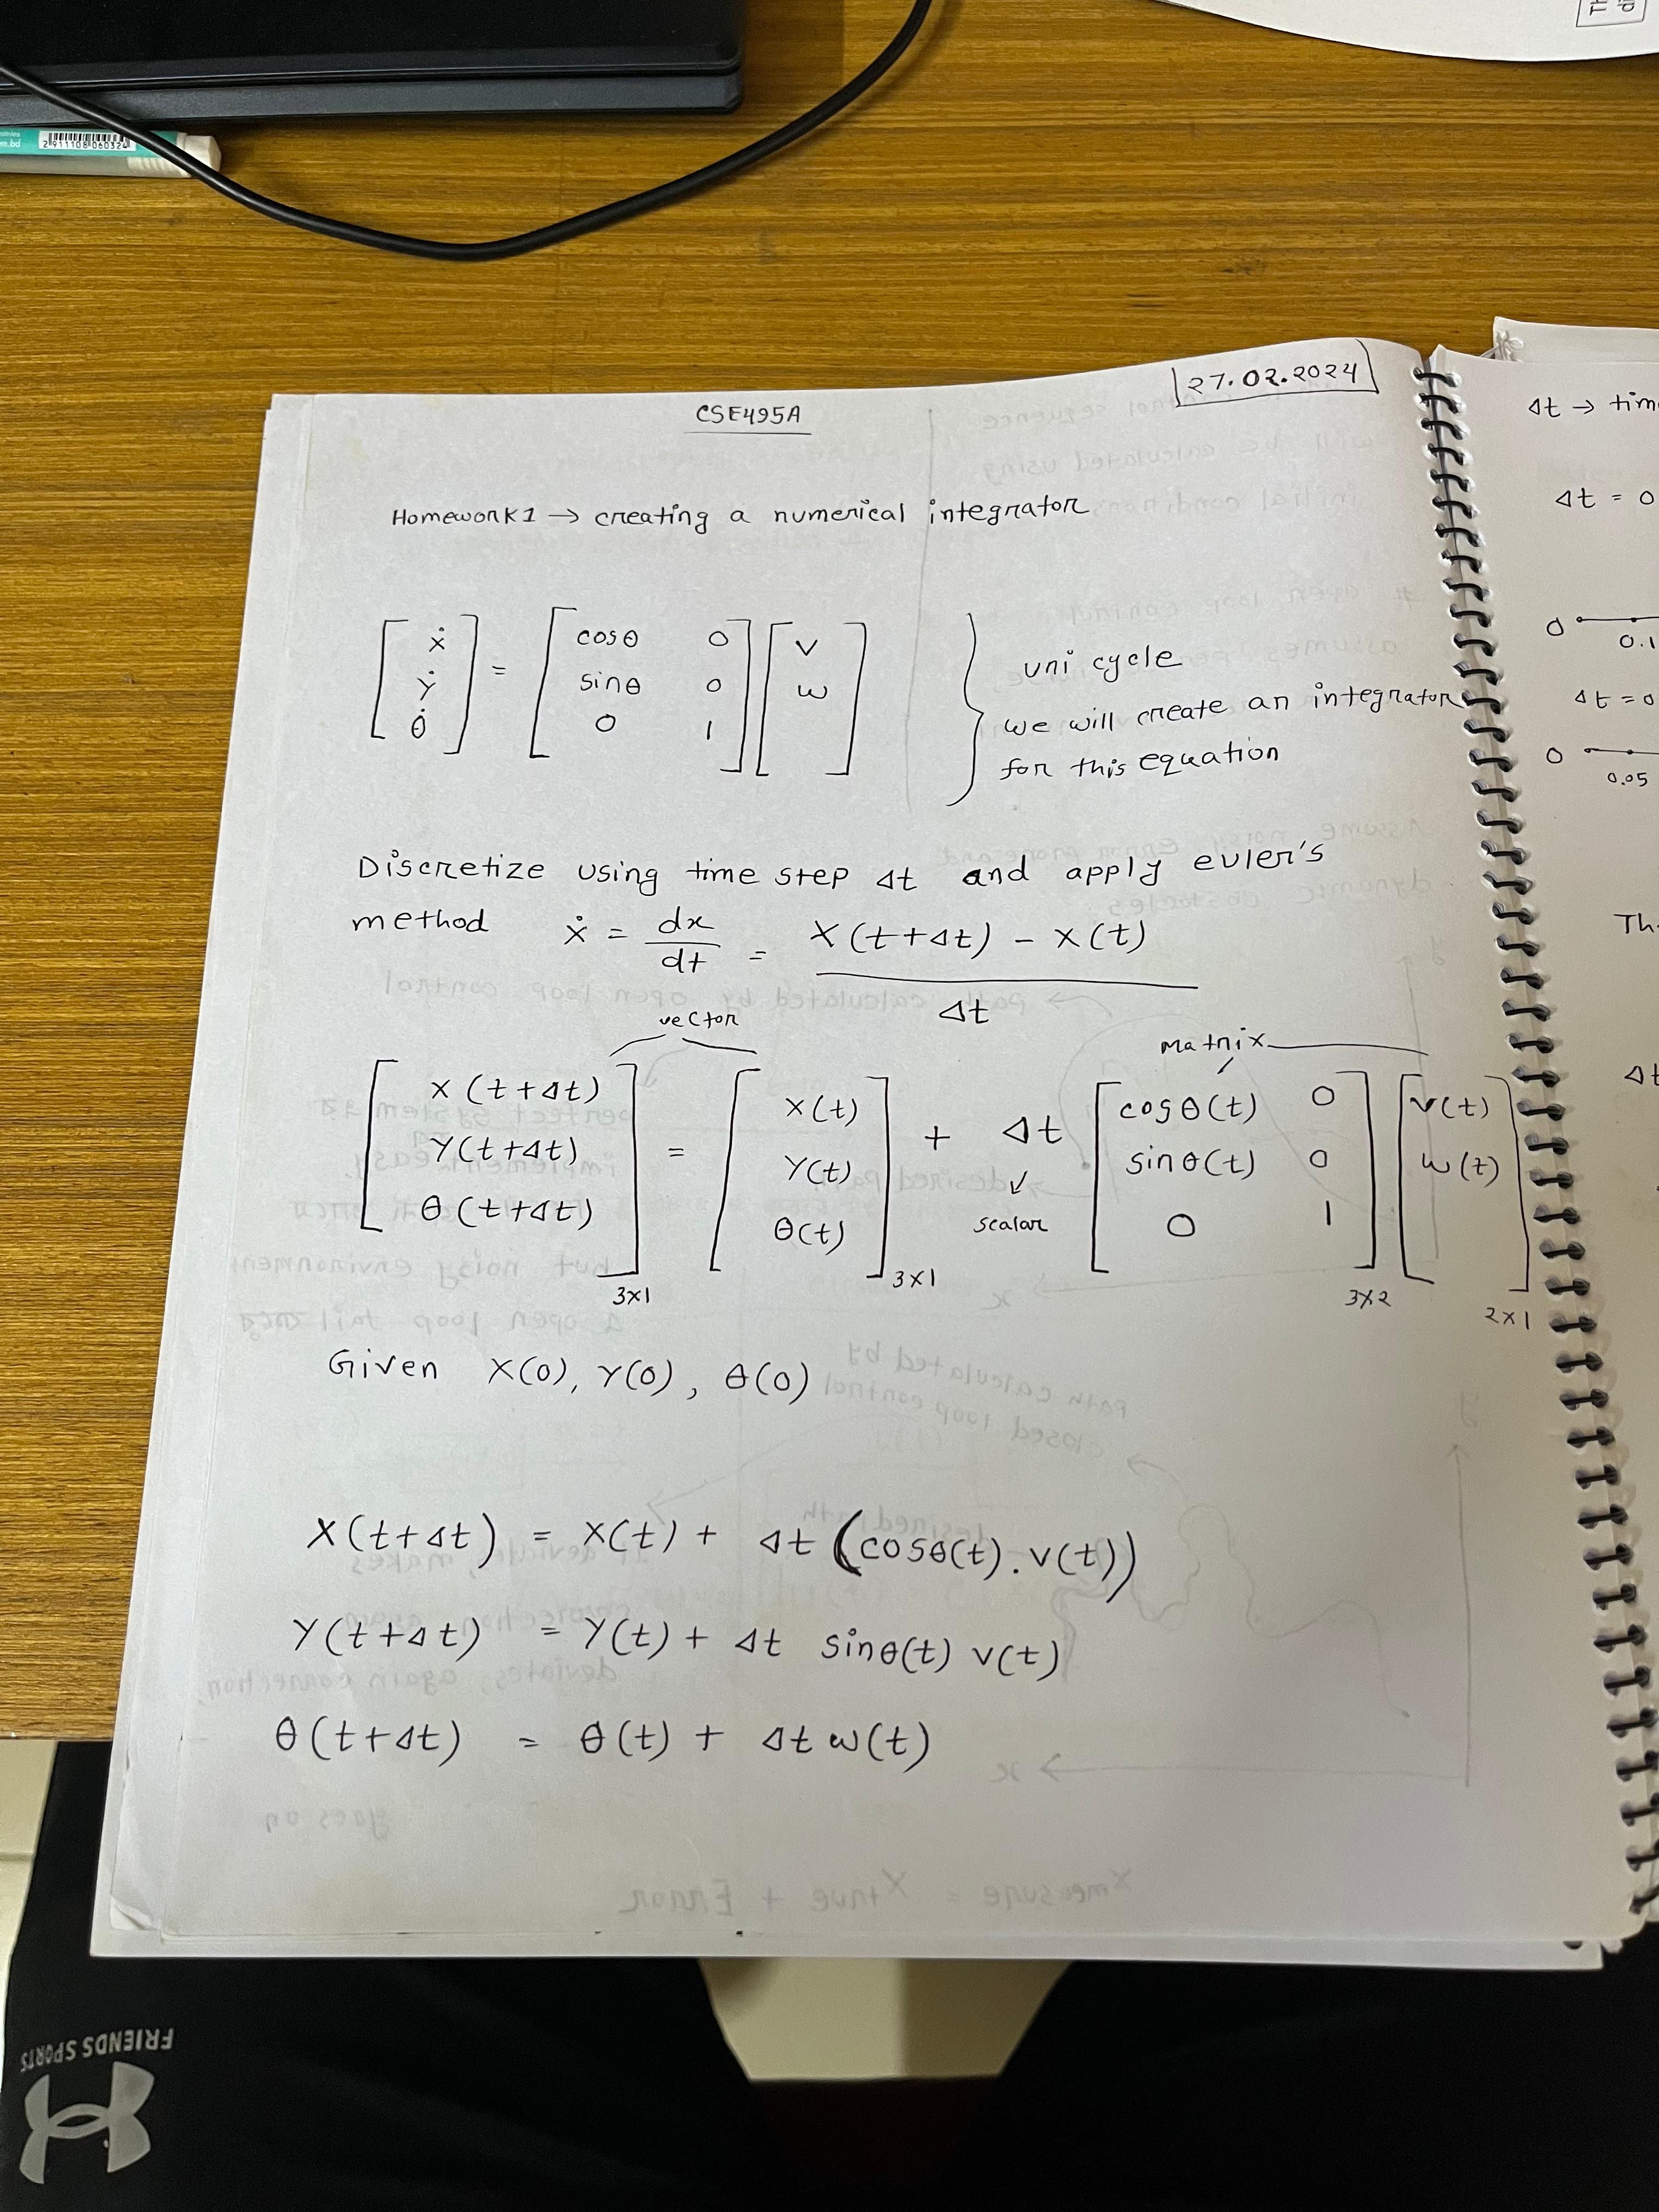 2911108060324
27.02.2024
CSE495A
Homework1 → creating a numerical integrator
[ẋ ẏ θ̇] = [cosθ 0; sinθ 0; 0 1] [v w] } uni cycle
we will create an integrator
for this equation
Discretize using time step Δt and apply euler's
method ẋ = dx/dt = X(t+Δt) - X(t) / Δt
vector
matrix
[X(t+Δt) Y(t+Δt) θ(t+Δt)] 3x1 = [X(t) Y(t) θ(t)] 3x1 + Δt [cosθ(t) 0; sinθ(t) 0; 0 1] 3x2 [v(t) w(t)] 2x1
scalar
Given X(0), Y(0), θ(0)
X(t+Δt) = X(t) + Δt (cosθ(t). v(t))
Y(t+Δt) = Y(t) + Δt sinθ(t) v(t)
θ(t+Δt) = θ(t) + Δt w(t)
Δt →
Δt = 0
0
0.1
Δt = 0
0
0.05
Δt
FRIENDS SPORTS